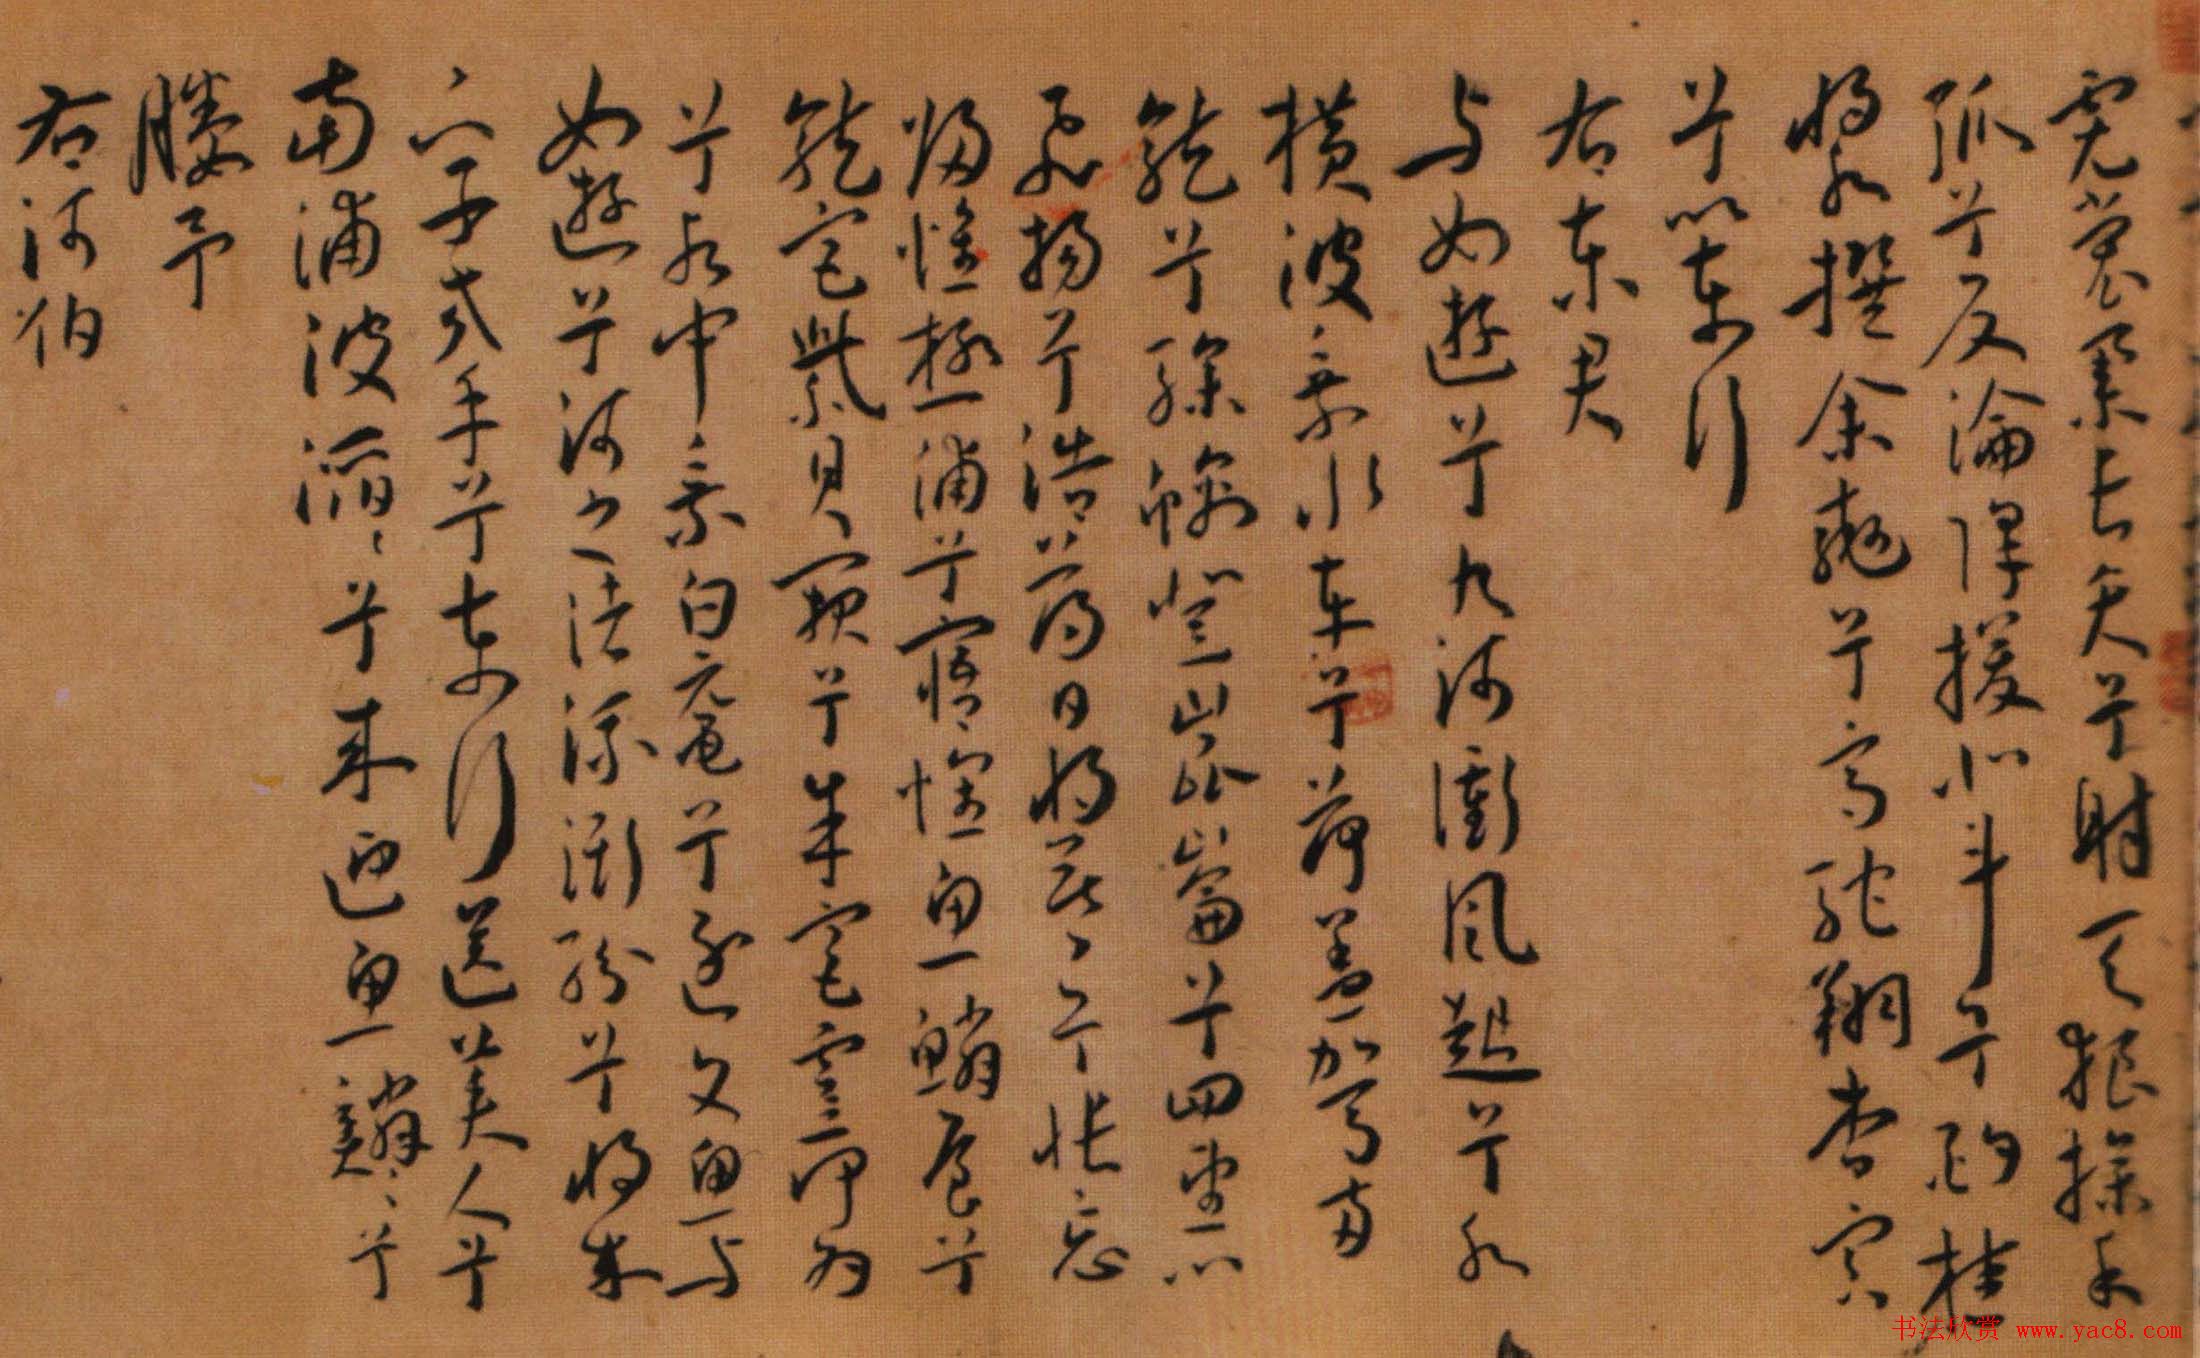 霓裳舉長矢兮射天狼操余
弧兮反淪降援北斗兮酌桂
漿撰余轡兮高駝翔杳冥
兮以東行
右東君
与女遊兮九河衝風起兮水
橫波乘水車兮荷蓋駕兩
龍兮驂螭登崐崙兮四望心
飛揚兮浩蕩日將暮兮悵忘
歸惟極浦兮寤懷魚鱗屋兮
龍宮紫貝闕兮朱宮靈何為
兮水中乘白黿兮逐文魚与
女遊兮河之渚流澌紛兮將来
子交手兮東行送美人兮
南浦波滔〻兮来迎魚鱗〻兮
媵予
右河伯
书法欣赏 www.yac8.com